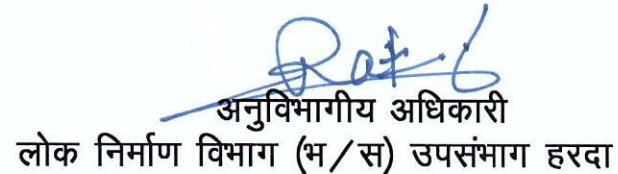 अनुविभागीय अधिकारी
लोक निर्माण विभाग (भ/स) उपसंभाग हरदा